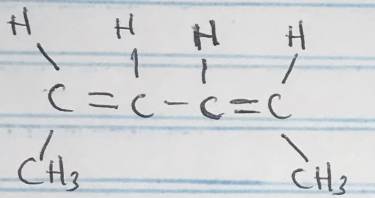 H H H H
C = C - C = C
CH3 CH3